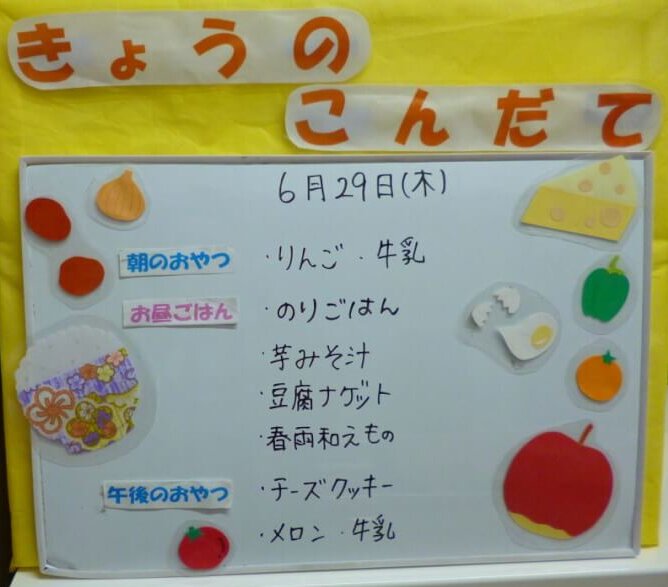 きょうの
こんだて
6月29日(木)
朝のおやつ ・りんご ・牛乳
お昼ごはん ・のりごはん
・芋みそ汁
・豆腐ナゲット
・春雨和えもの
午後のおやつ ・チーズクッキー
・メロン ・牛乳